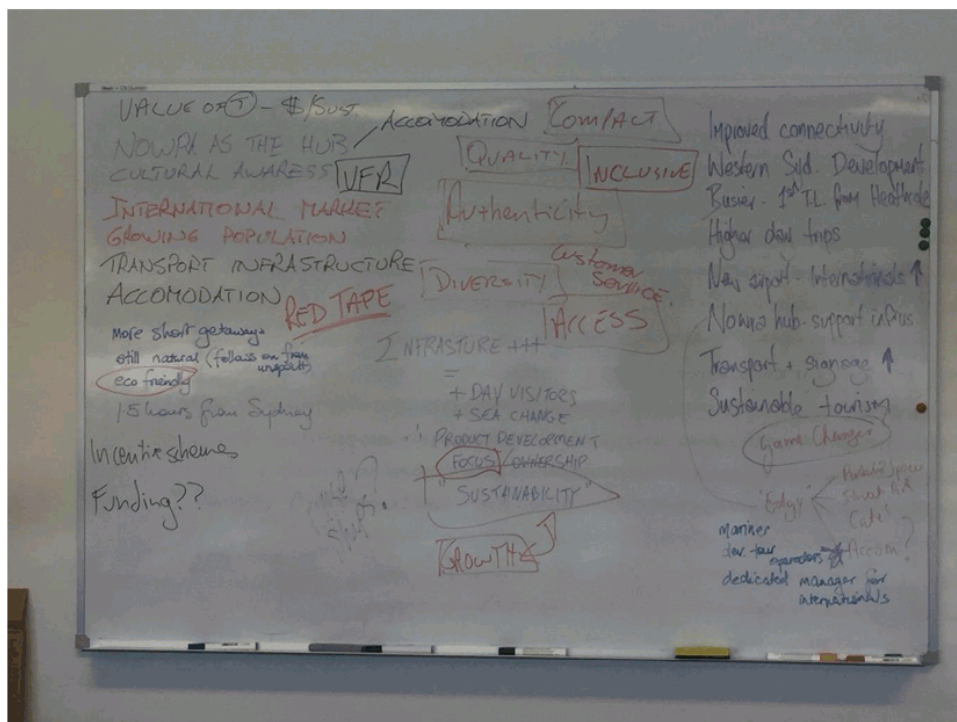 VALUE OF T - $/SUST.
NOWRA AS THE HUB
CULTURAL AWARESS VFR
INTERNATIONAL MARKET
GROWING POPULATION
TRANSPORT INFRASTRUCTURE
ACCOMODATION
RED TAPE
more short getaways
still natural (follows on from
unspoilt)
eco friendly
1.5 hours from Sydney
Incentive schemes
Funding??
ACCOMODATION
COMPACT
QUALITY
INCLUSIVE
Authenticity
DIVERSITY
Customer
SERVICE
ACCESS
INFRASTURE +++
=
+ DAY VISITORS
+ SEA CHANGE
PRODUCT DEVELOPMENT
FOCUS / OWNERSHIP
"SUSTAINABILITY"
GROWTH
Improved connectivity
Western Syd. Development
Busier - 1st T.L. from Heathcote
Higher day trips
New airport - Internationals ↑
Nowra hub - support infrus
Transport + signage ↑
Sustainable tourism
Game Changer
"Edgy"
Cafe's
Accom?
mariner
dev. tour
operators
dedicated manager for
internationals